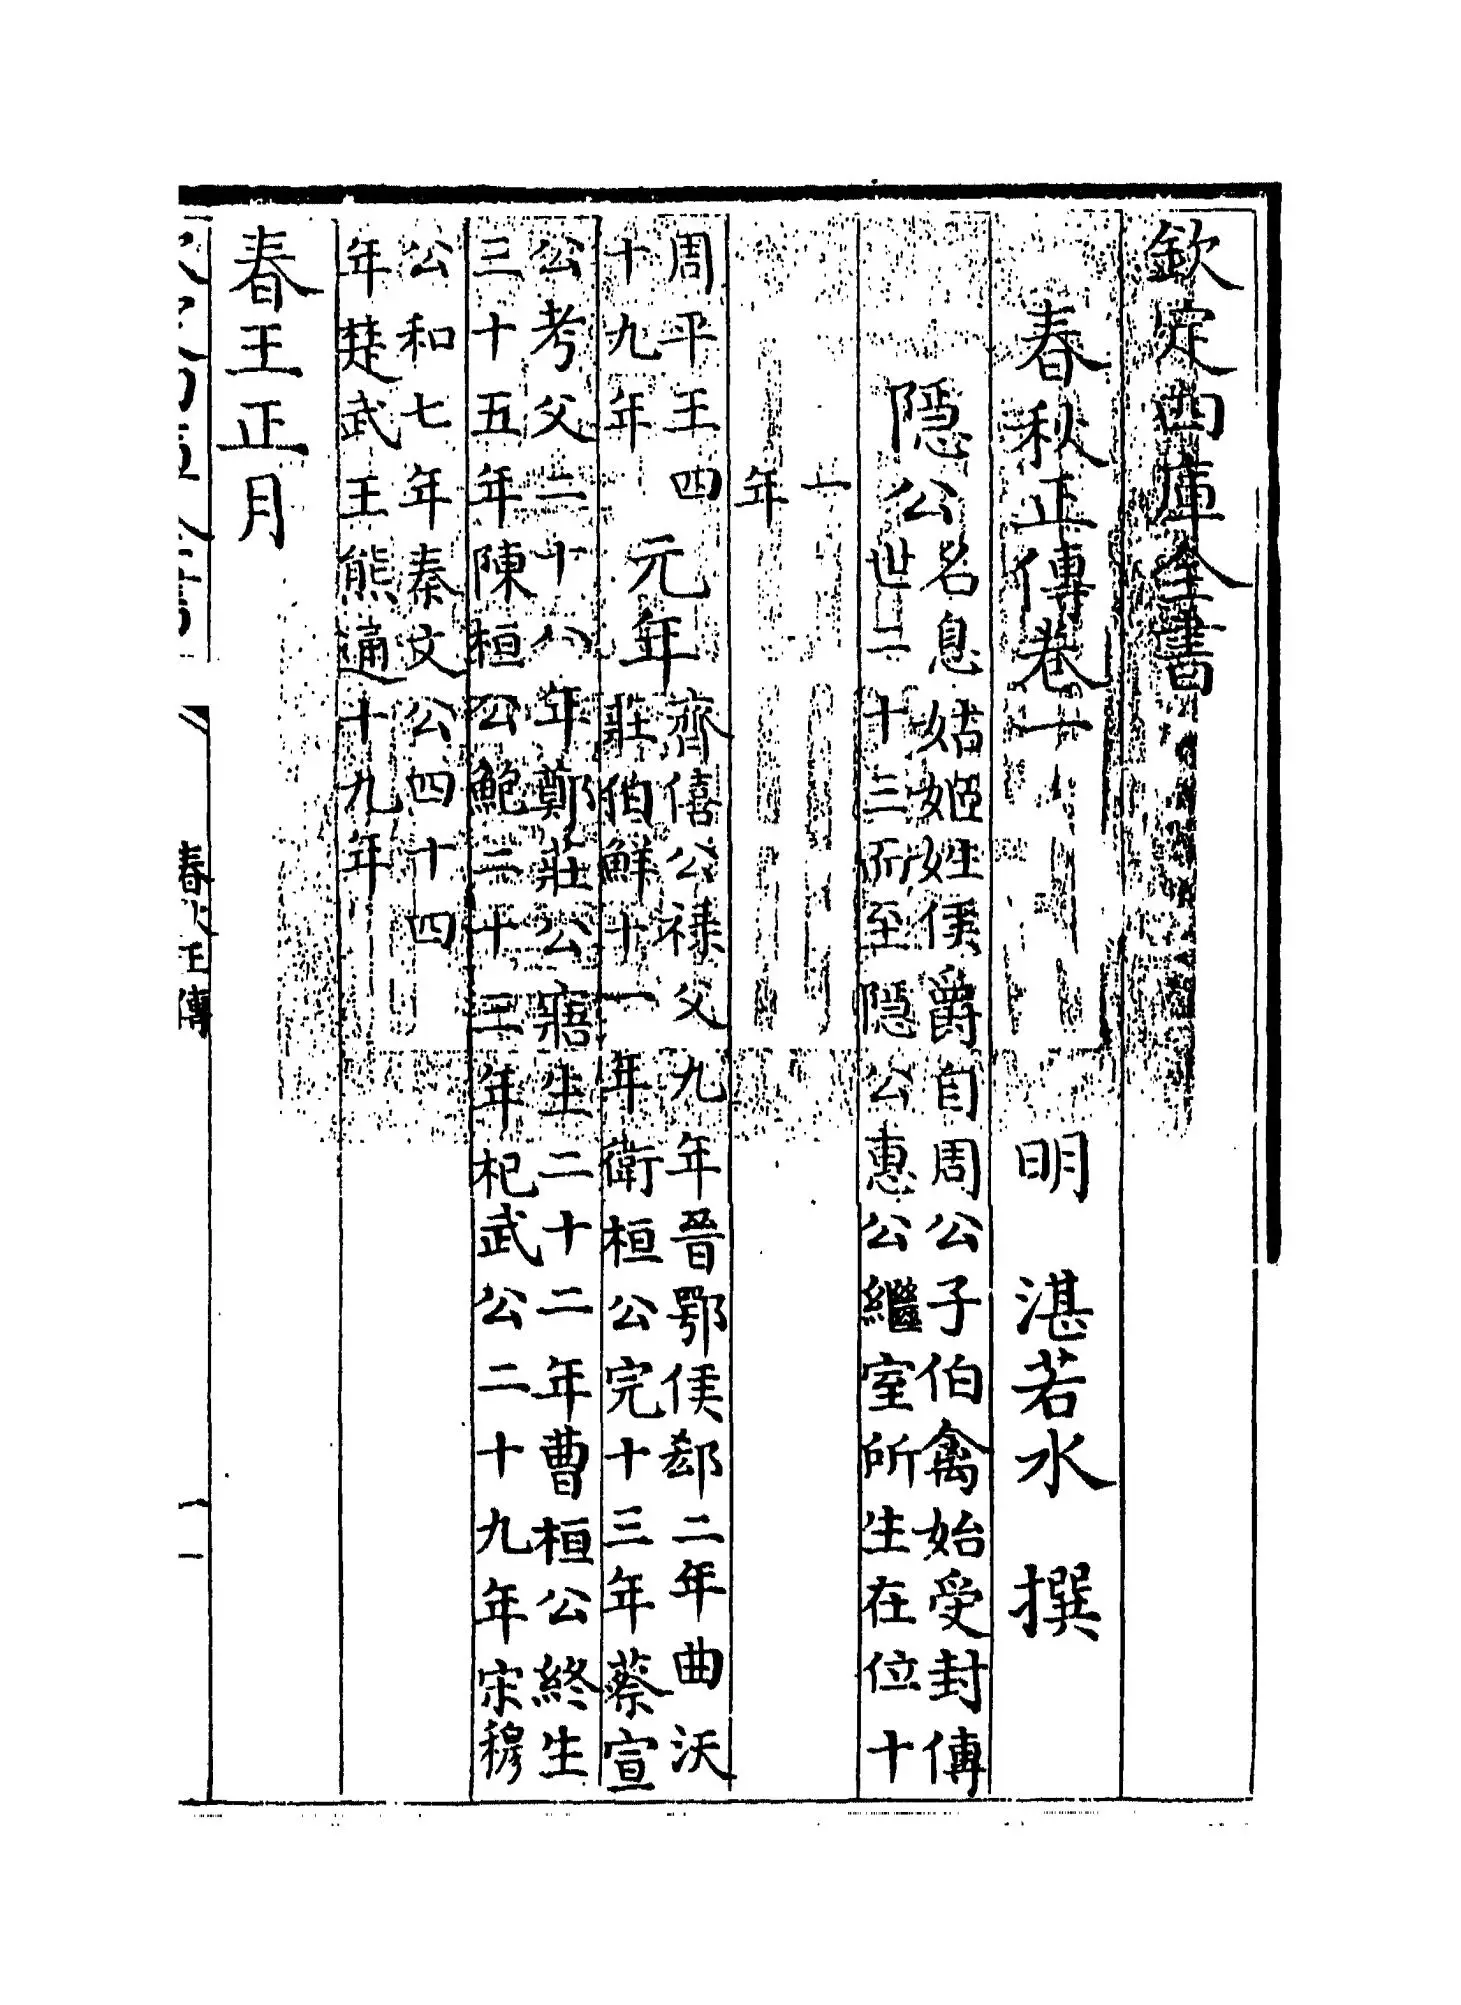 欽定四庫全書
春秋正傳卷一　明　湛若水　撰
隱公
名息姑姬姓侯爵自周公子伯禽始受封傳
世二十三所至隱公惠公繼室所生在位十
一
年
周平王四
十九年
元年
齊僖公祿父九年晉鄂侯郄二年曲沃
莊伯鮮十一年衛桓公完十三年蔡宣
公考父二十八年鄭莊公寤生二十二年曹桓公終生
三十五年陳桓公鮑二十三年杞武公二十九年宋穆
公和七年秦文公四十四
年楚武王熊通十九年
春王正月
春秋正傳